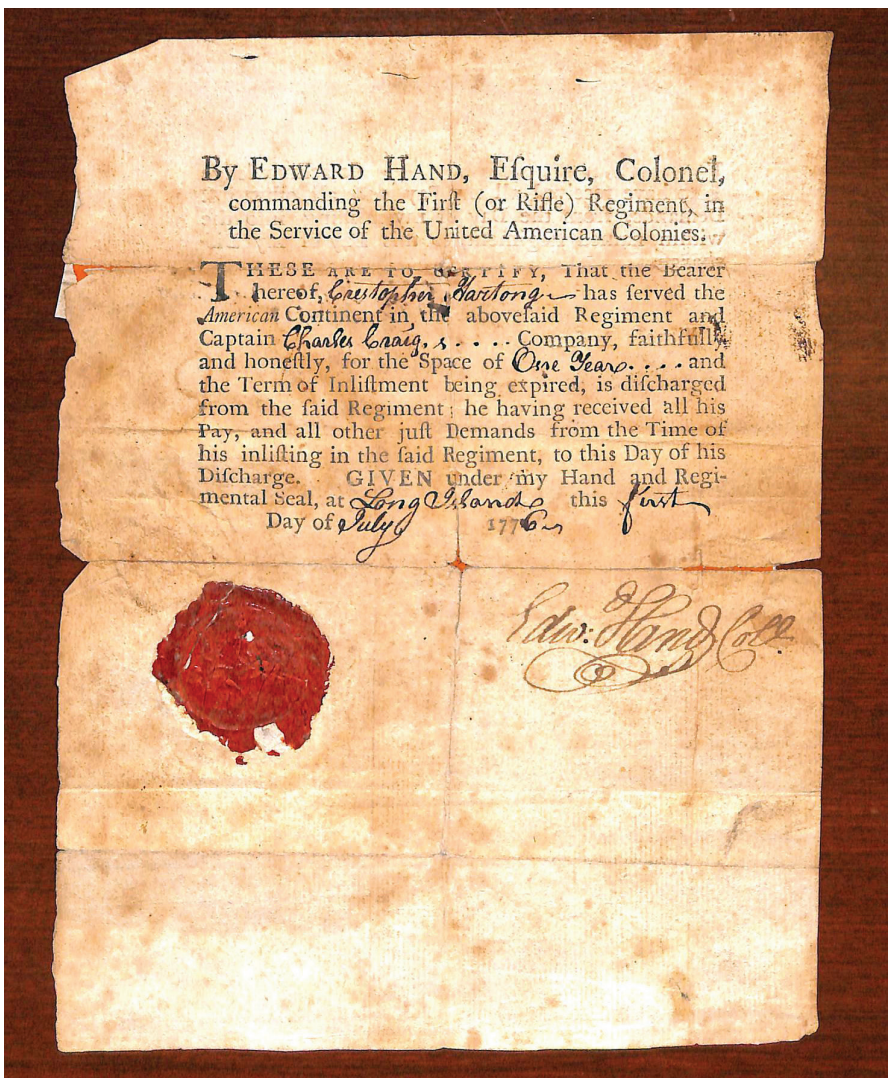 By EDWARD HAND, Eſquire, Colonel,
commanding the Firſt (or Rifle) Regiment, in
the Service of the United American Colonies.
THESE ARE TO CERTIFY, That the Bearer
hereof, Crestopher Hartong has ſerved the
American Continent in the aboveſaid Regiment and
Captain Charles Craig,s .... Company, faithfully
and honeſtly, for the Space of One Year .... and
the Term of Inliſtment being expired, is diſcharged
from the ſaid Regiment; he having received all his
Pay, and all other juſt Demands from the Time of
his inliſting in the ſaid Regiment, to this Day of his
Diſcharge. GIVEN under my Hand and Regi-
mental Seal, at Long Island this first
Day of July 1776
Edw: Hand Coll